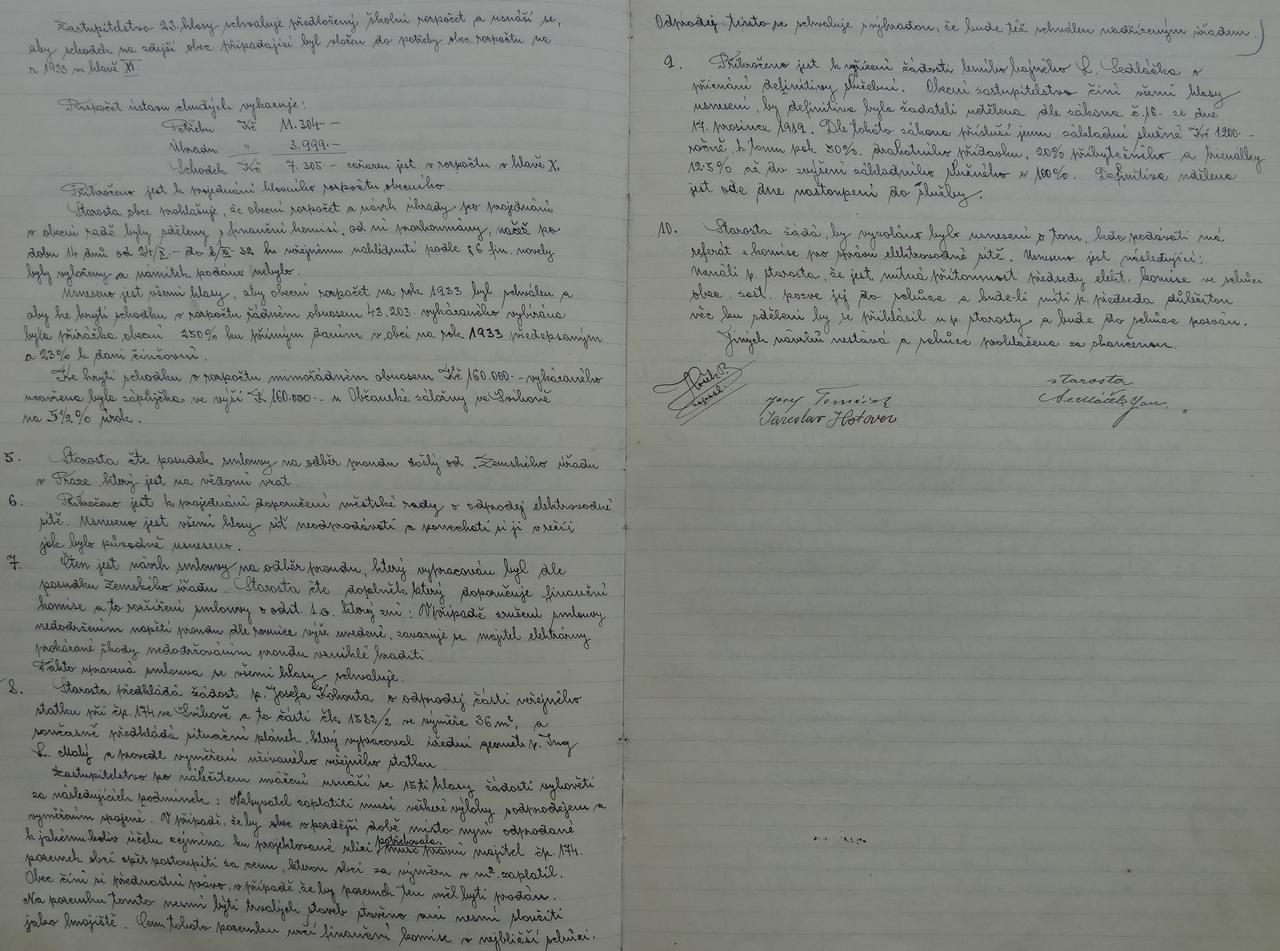 Zastupitelstvo 23 hlasy schvaluje předložený školní rozpočet a usnáší se,
aby schodek na zdejší obec připadající byl vložen do potřeby obec. rozpočtu na
r. 1933 ve hlavě XI.
Rozpočet ústavu chudých vykazuje:
Potřebu Kč 11.304.—
Úhradu „ 3.999.—
Schodek Kč 7.305.— zařazen jest v rozpočtu v hlavě X.
Přikročeno jest k projednání hlavního rozpočtu obecního.
Starosta obce prohlašuje, že obecní rozpočet a návrh úhrady po projednání
v obecní radě byly sděleny s finanční komisí, od ní prozkoumány, načež po
dobu 14 dnů od 24/X.— do 8/XI— 32 ku veřejnému nahlédnutí podle § 6 fin. novely
byly vyloženy a námitek podáno nebylo.
Usneseno jest všemi hlasy, aby obecní rozpočet na rok 1933 byl schválen a
aby ke krytí schodku v rozpočtu řádném obnosem 43.203.— vykázaného vybírána
byla přirážka obecní 250% ku přímým daním v obci na rok 1933 předepsaným
a 23% k dani činžovní.
Ke krytí schodku v rozpočtu mimořádném obnosem Kč 160.000.— vykázaného
uzavřena byla zápůjčka ve výši K 160.000.— u Občanské záložny ve Švihově
na 5 1/2 % úrok.
5. Starosta čte posudek smlouvy na odběr proudu došlý od Zemského úřadu
v Praze který jest na vědomí vzat.
6. Přikročeno jest k projednání doporučení městské rady o odprodej elektrovodné
sítě. Usneseno jest všemi hlasy síť neodprodávati a ponechati si ji v režii
jak bylo původně usneseno.
7. Čten jest návrh smlouvy na odběr proudu, který vypracován byl dle
posudku Zemského úřadu. Starosta čte doplněk který doporučuje finanční
komise a to rozšíření smlouvy o odst. 1a. který zní: V případě zrušení smlouvy
nedodržením napětí proudu dle rovnice výše uvedené, zavazuje se majitel elektrárny
prokázané škody nedodržováním proudu vzniklé hraditi.
Takto upravená smlouva se všemi hlasy schvaluje.
8. Starosta předkládá žádost p. Josefa Kohouta o odprodej části veřejného
statku při čp. 174 ve Švihově a to části čk. 1582/2 ve výměře 36 m², a
současně předkládá situační plánek, který vypracoval úřední geometr p. Ing
L. Malý a provedl vyměření užívaného veřejného statku.
Zastupitelstvo po náležitém uvážení usnáší se 15ti hlasy žádosti vyhověti
za následujících podmínek: Nabyvatel zaplatiti musí veškeré výlohy s odprodejem a
vyměřením spojené. V případě, že by obec v pozdější době místo nyní odprodané
k jakémukoliv účelu zejména ku projektované ulici potřebovala, musí právní majitel čp. 174.
pozemek obci zpět postoupiti za cenu, kterou obci za výměru v m² zaplatil.
Obec činí si přednostní právo, v případě že by pozemek ten měl býti prodán.
Na pozemku tomto nesmí býti trvalých staveb stavěno ani nesmí sloužiti
jako hnojiště. Cenu tohoto pozemku určí finanční komise v nejbližší schůzi.
Odprodej tento se schvaluje s výhradou, že bude též schválen nadřízeným úřadem.
9. Přikročeno jest k vyřízení žádosti lesního hajného L. Sedláčka o
přiznání definitivy služební. Obecní zastupitelstvo činí všemi hlasy
usnesení, by definitiva byla žadateli udělena dle zákona č. 16. ze dne
17. prosince 1919. Dle tohoto zákona přísluší jemu základní služné Kč 1200.—
ročně, k tomu pak 50% drahotního přídavku, 20% příbytečného a trienálky
12.5% až do zvýšení základního služného o 100%. Definitiva udělena
jest ode dne nastoupení do služby.
10. Starosta žádá, by vyvoláno bylo usnesení o tom, kdo podávati má
referát z komise pro správu elektrovodné sítě. Usneseno jest následující:
Uzná-li p. starosta, že jest nutná přítomnost předsedy elekt. komise ve schůzi
obec. zast. pozve jej do schůze a bude-li míti p. předseda důležitou
věc ku sdělení by se přihlásil u p. starosty a bude do schůze pozván.
Jiných návrhů nestává a schůze prohlášena za skončenou.
starosta
Sedláček Jan.
Josef Tomášek
Jaroslav Hotovec